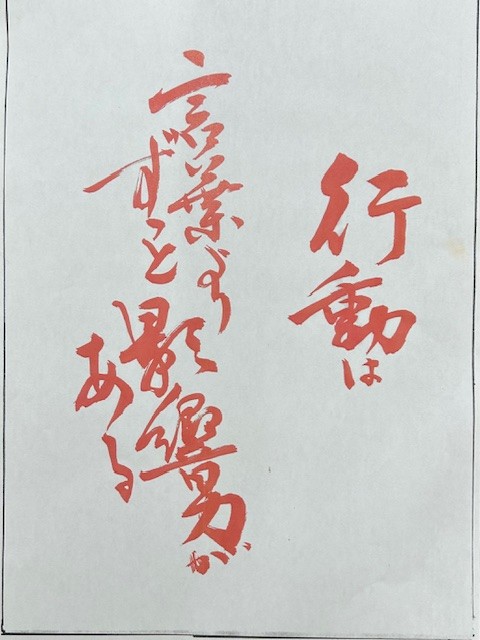 行動は
言葉より
ずっと
影響力が
ある